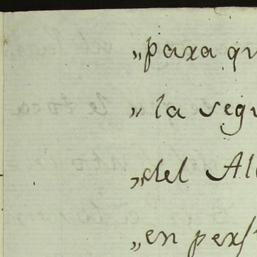 „para qu
„la segu
„del Al
„en perſ